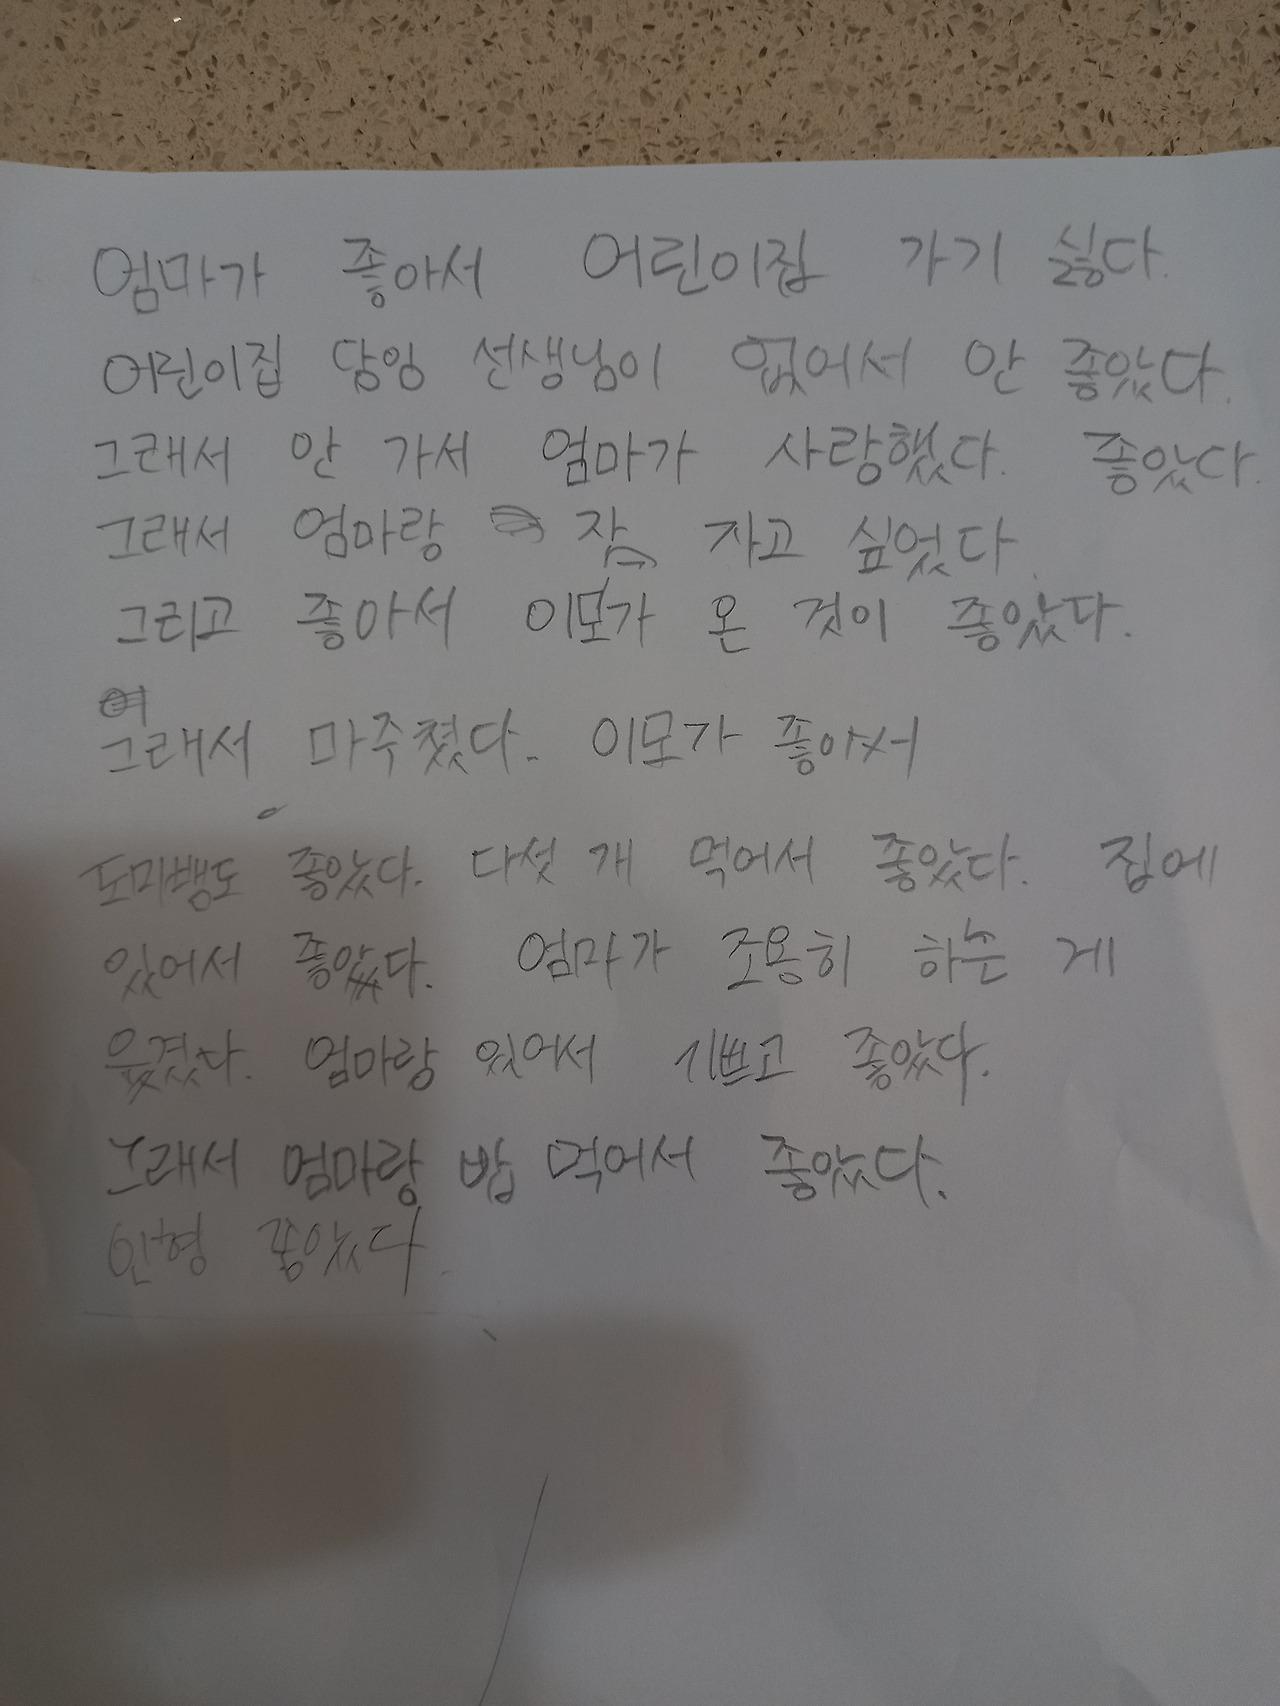 엄마가 좋아서 어린이집 가기 싫다.
어린이집 담임 선생님이 없어서 안 좋았다.
그래서 안 가서 엄마가 사랑했다. 좋았다.
그래서 엄마랑 잠 자고 싶었다.
그리고 좋아서 이모가 온 것이 좋았다.
그래서 마주쳤다. 이모가 좋아서
도미빵도 좋았다. 다섯 개 먹어서 좋았다. 집에
있어서 좋았다. 엄마가 조용히 하는 게
웃겼다. 엄마랑 있어서 기쁘고 좋았다.
그래서 엄마랑 밥 먹어서 좋았다.
인형 좋았다.